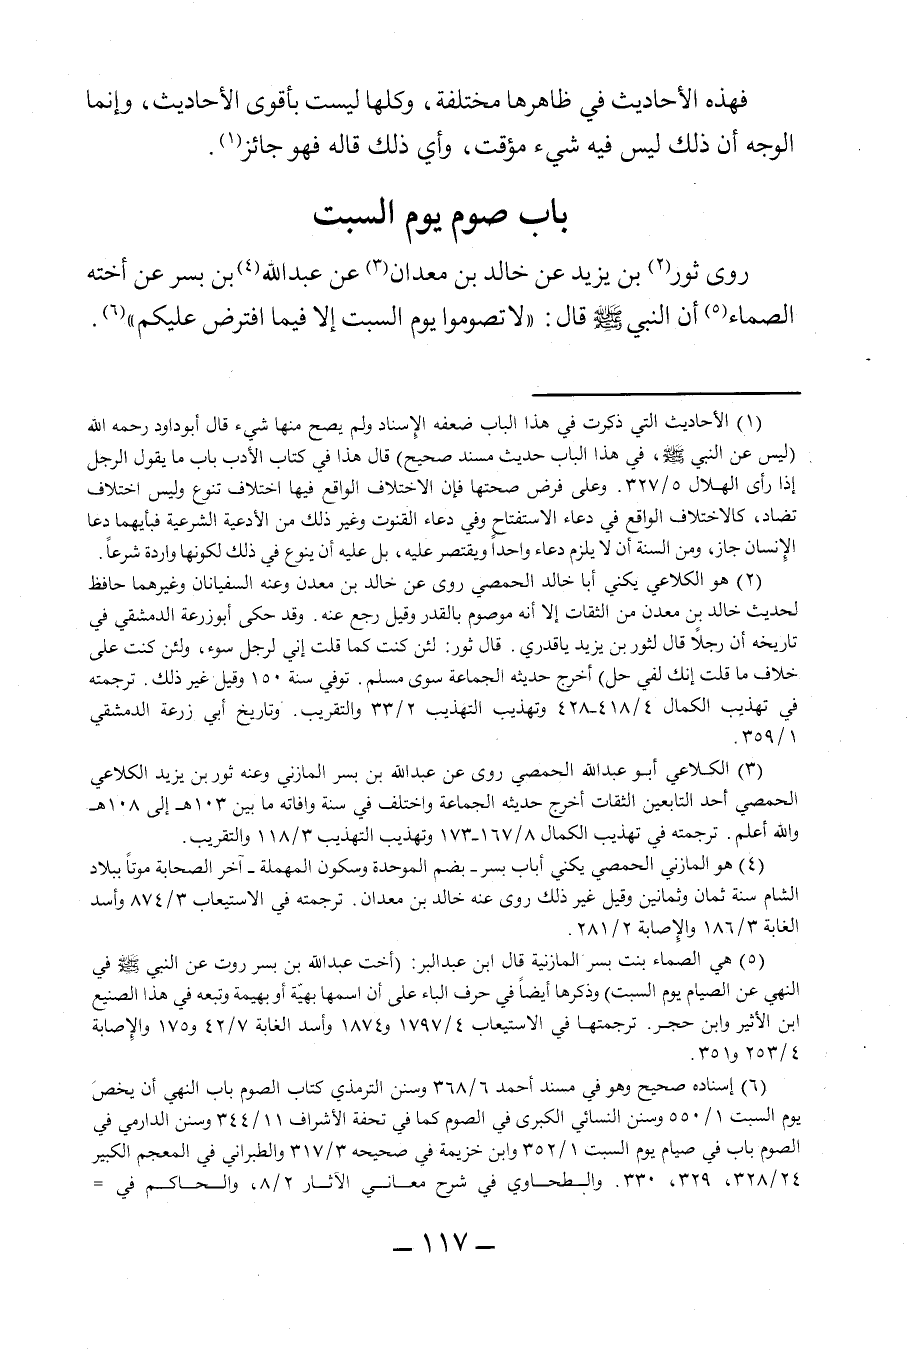 فهذه الأحاديث في ظاهرها مختلفة، وكلها ليست بأقوى الأحاديث، وإنما
الوجه أن ذلك ليس فيه شيء مؤقت، وأي ذلك قاله فهو جائز(١).
باب صوم يوم السبت
روى ثور(٢) بن يزيد عن خالد بن معدان(٣) عن عبدالله(٤) بن بسر عن أخته
الصماء(٥) أن النبي ﷺ قال: «لا تصوموا يوم السبت إلا فيما افترض عليكم»(٦).
(١) الأحاديث التي ذكرت في هذا الباب ضعفه الإسناد ولم يصح منها شيء قال أبوداود رحمه الله
(ليس عن النبي ﷺ، في هذا الباب حديث مسند صحيح) قال هذا في كتاب الأدب باب ما يقول الرجل
إذا رأى الهلال ٣٢٧/٥. وعلى فرض صحتها فإن الاختلاف الواقع فيها اختلاف تنوع وليس اختلاف
تضاد، كالاختلاف الواقع في دعاء الاستفتاح وفي دعاء القنوت وغير ذلك من الأدعية الشرعية فبأيهما دعا
الإنسان جاز، ومن السنة أن لا يلزم دعاء واحداً ويقتصر عليه، بل عليه أن ينوع في ذلك لكونها واردة شرعاً.
(٢) هو الكلاعي يكني أبا خالد الحمصي روى عن خالد بن معدن وعنه السفيانان وغيرهما حافظ
لحديث خالد بن معدن من الثقات إلا أنه موصوم بالقدر وقيل رجع عنه. وقد حكى أبوزرعة الدمشقي في
تاريخه أن رجلاً قال لثور بن يزيد ياقدري. قال ثور: لئن كنت كما قلت إني لرجل سوء، ولئن كنت على
خلاف ما قلت إنك لفي حل) أخرج حديثه الجماعة سوى مسلم. توفي سنة ١٥٠ وقيل غير ذلك. ترجمته
في تهذيب الكمال ٤١٨/٤-٤٢٨ وتهذيب التهذيب ٣٣/٢ والتقريب. وتاريخ أبي زرعة الدمشقي
٣٥٩/١.
(٣) الكلاعي أبو عبدالله الحمصي روى عن عبدالله بن بسر المازني وعنه ثور بن يزيد الكلاعي
الحمصي أحد التابعين الثقات أخرج حديثه الجماعة واختلف في سنة وافاته ما بين ١٠٣هـ إلى ١٠٨هـ
والله أعلم. ترجمته في تهذيب الكمال ١٦٧/٨-١٧٣ وتهذيب التهذيب ١١٨/٣ والتقريب.
(٤) هو المازني الحمصي يكني أباب بسر - بضم الموحدة وسكون المهملة - آخر الصحابة موتاً ببلاد
الشام سنة ثمان وثمانين وقيل غير ذلك روى عنه خالد بن معدان. ترجمته في الاستيعاب ٨٧٤/٣ وأسد
الغابة ١٨٦/٣ والإصابة ٢٨١/٢.
(٥) هي الصماء بنت بسر المازنية قال ابن عبدالبر: (أخت عبدالله بن بسر روت عن النبي ﷺ في
النهي عن الصيام يوم السبت) وذكرها أيضاً في حرف الباء على أن اسمها بهيّة أو بهيمة وتبعه في هذا الصنيع
ابن الأثير وابن حجر. ترجمتها في الاستيعاب ١٧٩٧/٤ و١٨٧٤ وأسد الغابة ٤٢/٧ و١٧٥ والإصابة
٢٥٣/٤ و٣٥١.
(٦) إسناده صحيح وهو في مسند أحمد ٣٦٨/٦ وسنن الترمذي كتاب الصوم باب النهي أن يخصَ
يوم السبت ٥٥٠/١ وسنن النسائي الكبرى في الصوم كما في تحفة الأشراف ٣٤٤/١١ وسنن الدارمي في
الصوم باب في صيام يوم السبت ٣٥٢/١ وابن خزيمة في صحيحه ٣١٧/٣ والطبراني في المعجم الكبير
٣٢٨/٢٤، ٣٢٩، ٣٣٠. والطحاوي في شرح معاني الآثار ٨/٢، والحاكم في =
- ١١٧ -